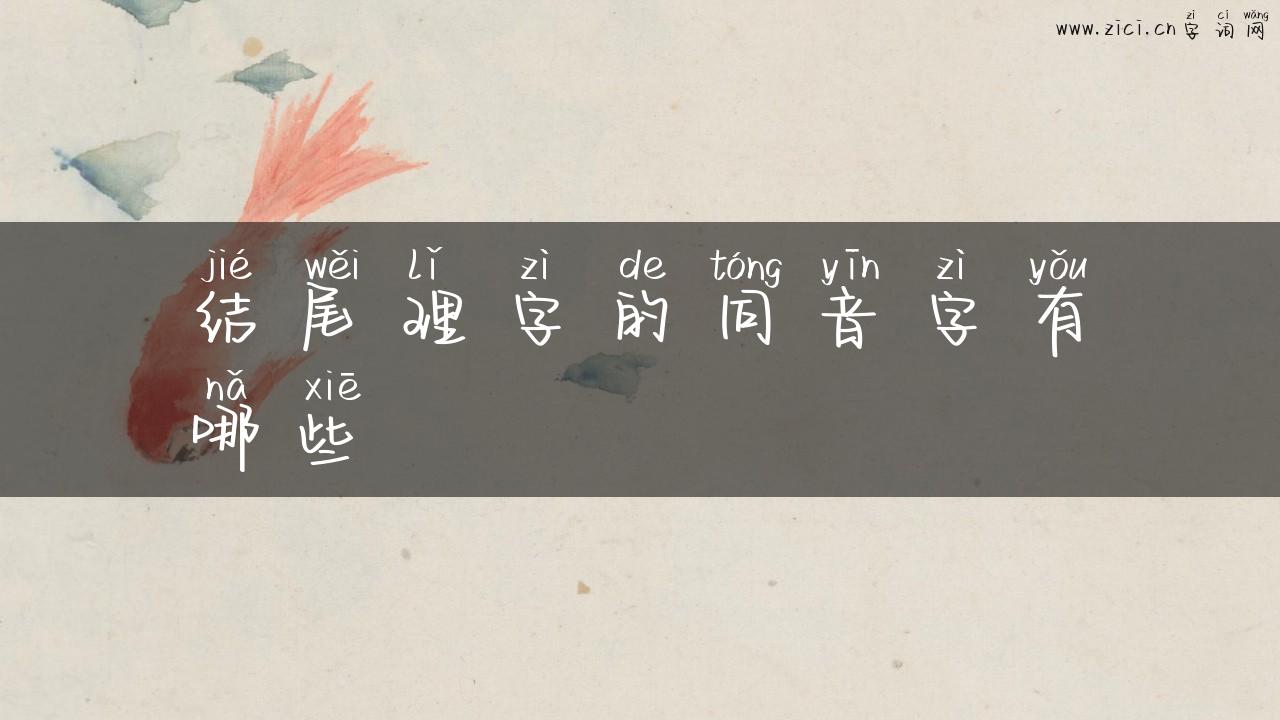 zì cí wǎng
www.zici.cn字词网
jié wěi lǐ zì de tóng yīn zì yǒu
结尾理字的同音字有
nǎ xiē
哪些